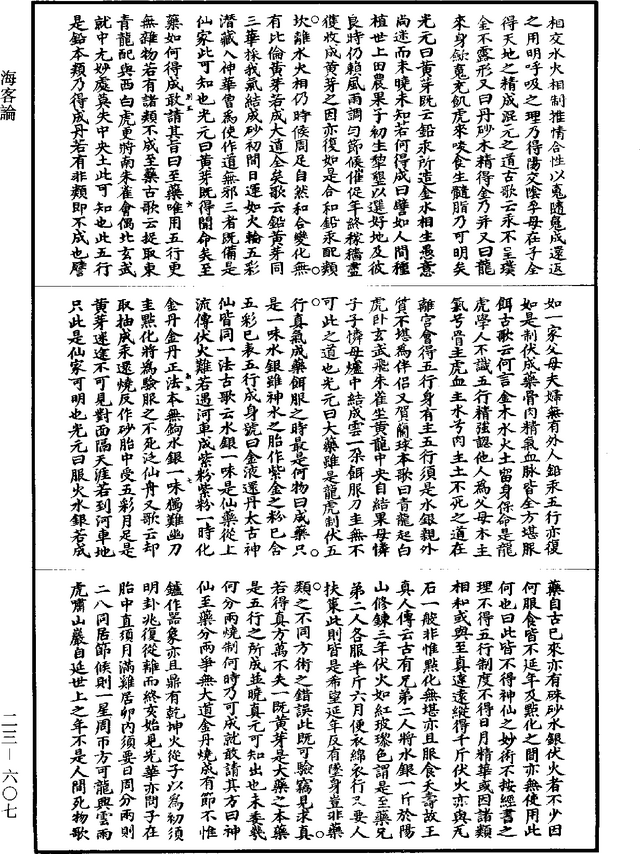 相交水火相制推情合性以嵬隨䰟成還返
之用明呼吸之理乃得陽交陰孕母在子全
得天地之精成混元之道古歌云汞不呈璞
金不露形又曰丹砂木精得金乃并又曰龍
來身歸䰟充飢虎來啖食生髓脂乃可明矣
光元曰黃芽既云鉛汞所造金水相生愚意
尚迷而未曉未知若何得成曰譬如人間種
植世上田農菓子初生犂墾以選好地及彼
良時仍賴風雨調勻節候催促年終稼穡盡
獲收成黃芽之因亦復如是合和鉛汞配類
坎離水火相伤時候周足自然和合變化無
有比倫黃芽若成大道全矣歌云鉛黃芽同
三華採我氣結成砂初間日運如火輪五彩
潛藏八仲華曾為使作道無邪三者既備是
仙家此可知也光元曰黃芽既得聞命矣至
藥如何得成敢請其旨曰至藥唯用五行更
無雜物若有諸類不成至藥古歌云捉取東
青龍配與西白虎更將南朱雀會偶北玄武
就中尤妙處莫失中央土此可知也此五行
是鉛本類乃得成丹若有非類即不成也譬
如一家父母夫婦無有外人鉛汞五行亦復
如是制伏成藥骨肉精氣血脉皆全方堪服
餌古歌云何言金木水火土留身保命是龍
虎學人不識五行精強認他人為父母木主
氣兮骨主虎血主水兮肉主土不死之道在
離宮會得五行身有主五行須是水銀親外
質不堪為伴侶又賀蘭球本歌曰青龍起白
虎卧玄武飛朱雀坐黃龍中央自結果母憐
子子憐母爐中結成雲一朵餌服刀圭無不
可此之道也光元曰大藥雖是龍虎制伏五
行真氣成藥餌服之時最是何物曰成藥只
是一味水銀雖神水之胎作紫金之粉已合
五彩已表五行成身號曰金液還丹太古神
仙皆同一法古歌云水銀一味是仙藥從上
流傳伏火難若遇河車成紫粉紫粉一時化
金丹金丹正法本無鉤水銀一味獨難幽刀
圭點化將為驗服之不死泛仙舟又歌云却
取抽成汞還燒反作砂胎中受五彩月足是
黃芽迷途不可見對面隔天涯若到河車地
只此是仙家可明也光元曰服火水銀若成
藥自古已來亦有硃砂水銀伏火者不少因
何服食皆不延年及點化之間亦無使用此
何也曰此皆不得神仙之妙術不按經書之
理不得五行制度不得日月精華或因諸類
相和或與至真違遠縱得千斤伏火亦與瓦
石一般非惟點化無堪亦且服食夭壽故王
真人傳云古有兄弟二人將水銀一斤於陽
山修鍊三年伏火如紅玻瓈色謂是至藥兄
弟二人各服半斤六月便衣綿衣行又要人
扶策此則皆是希望延年反有墜身豈非藥
類之不同方術之錯誤此既可驗竊見求真
若得真方萬不失一既黃芽是大藥之本藥
是五行之所成並曉真元可知出也未委幾
何分兩燒制何時乃可成就敢請其方曰神
仙至藥分兩爭無大道金丹燒成有節不惟
鑪作器象亦且鼎有乾坤火從子以為初須
明卦兆復從離而終亥始見光華亦問子在
胎中直須月滿雞居卵內須要日周分兩則
二八同居節候則一星周帀方可龍興雲雨
虎嘯山巖自延世上之年不是人間死物歌
海客論
二三—六〇七